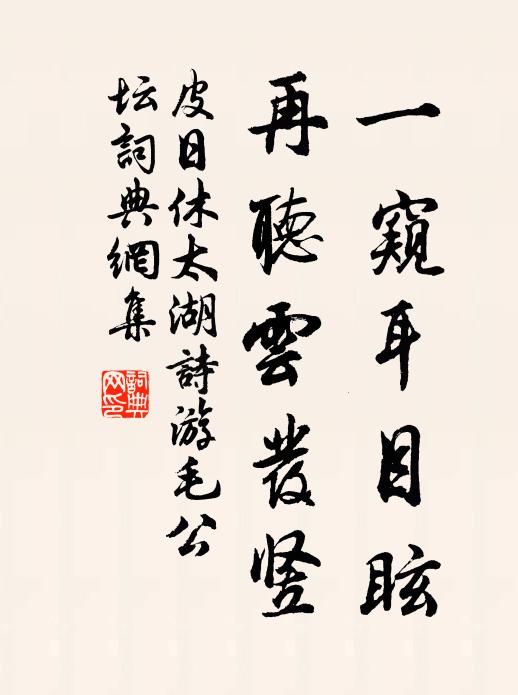 一窺耳目眩
再聽雲發竖
皮日休太湖詩游毛公
坛詞典網集
詞典
网印